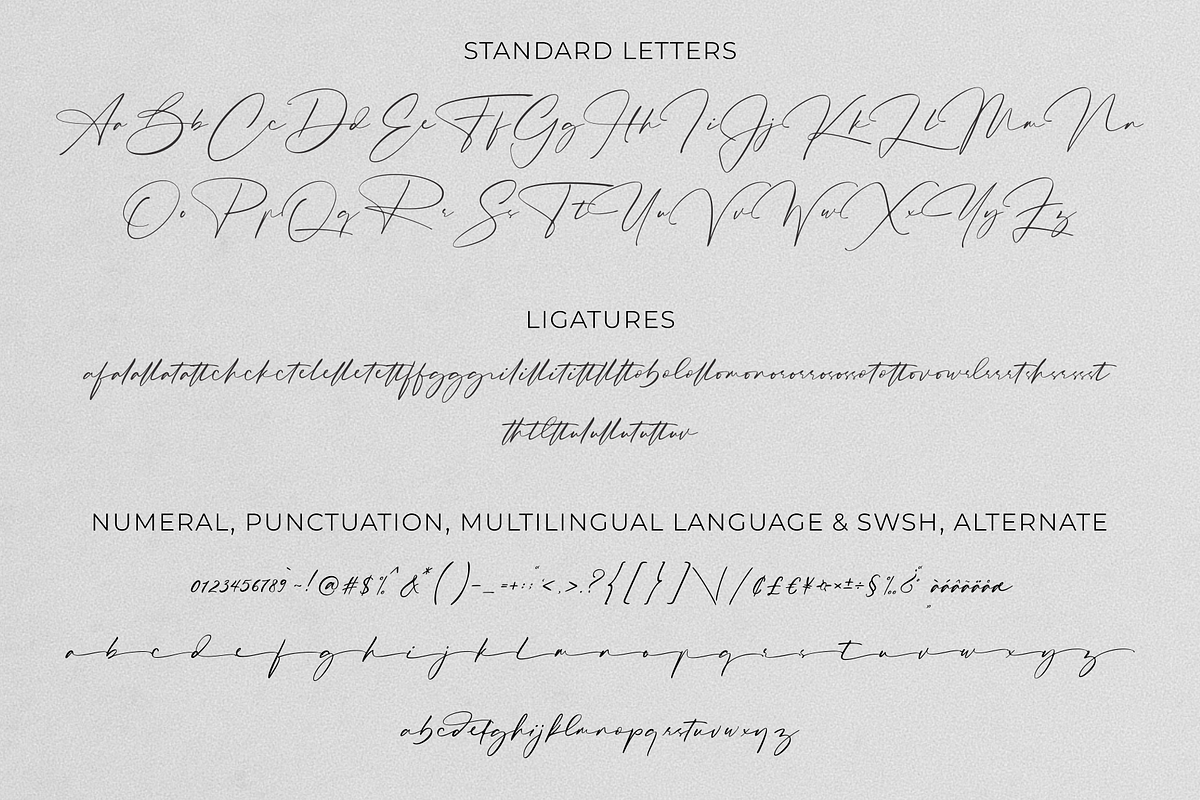 STANDARD LETTERS
Aa Bb Cc Dd Ee Ff Gg Hh Ii Jj Kk Ll Mm Nn
Oo Pp Qq Rr Ss Tt Uu Vv Ww Xx Yy Zz
LIGATURES
NUMERAL, PUNCTUATION, MULTILINGUAL LANGUAGE & SWSH, ALTERNATE
0123456789`~!@#$%^&*()-_=+:;"'<,>.?{[}]\/¢£€¥¤×±÷§‰¿„àáâãäåæ
a b c d e f g h i j k l m n o p q r s t u v w x y z
abcdefghijklmnopqrstuvwxyz